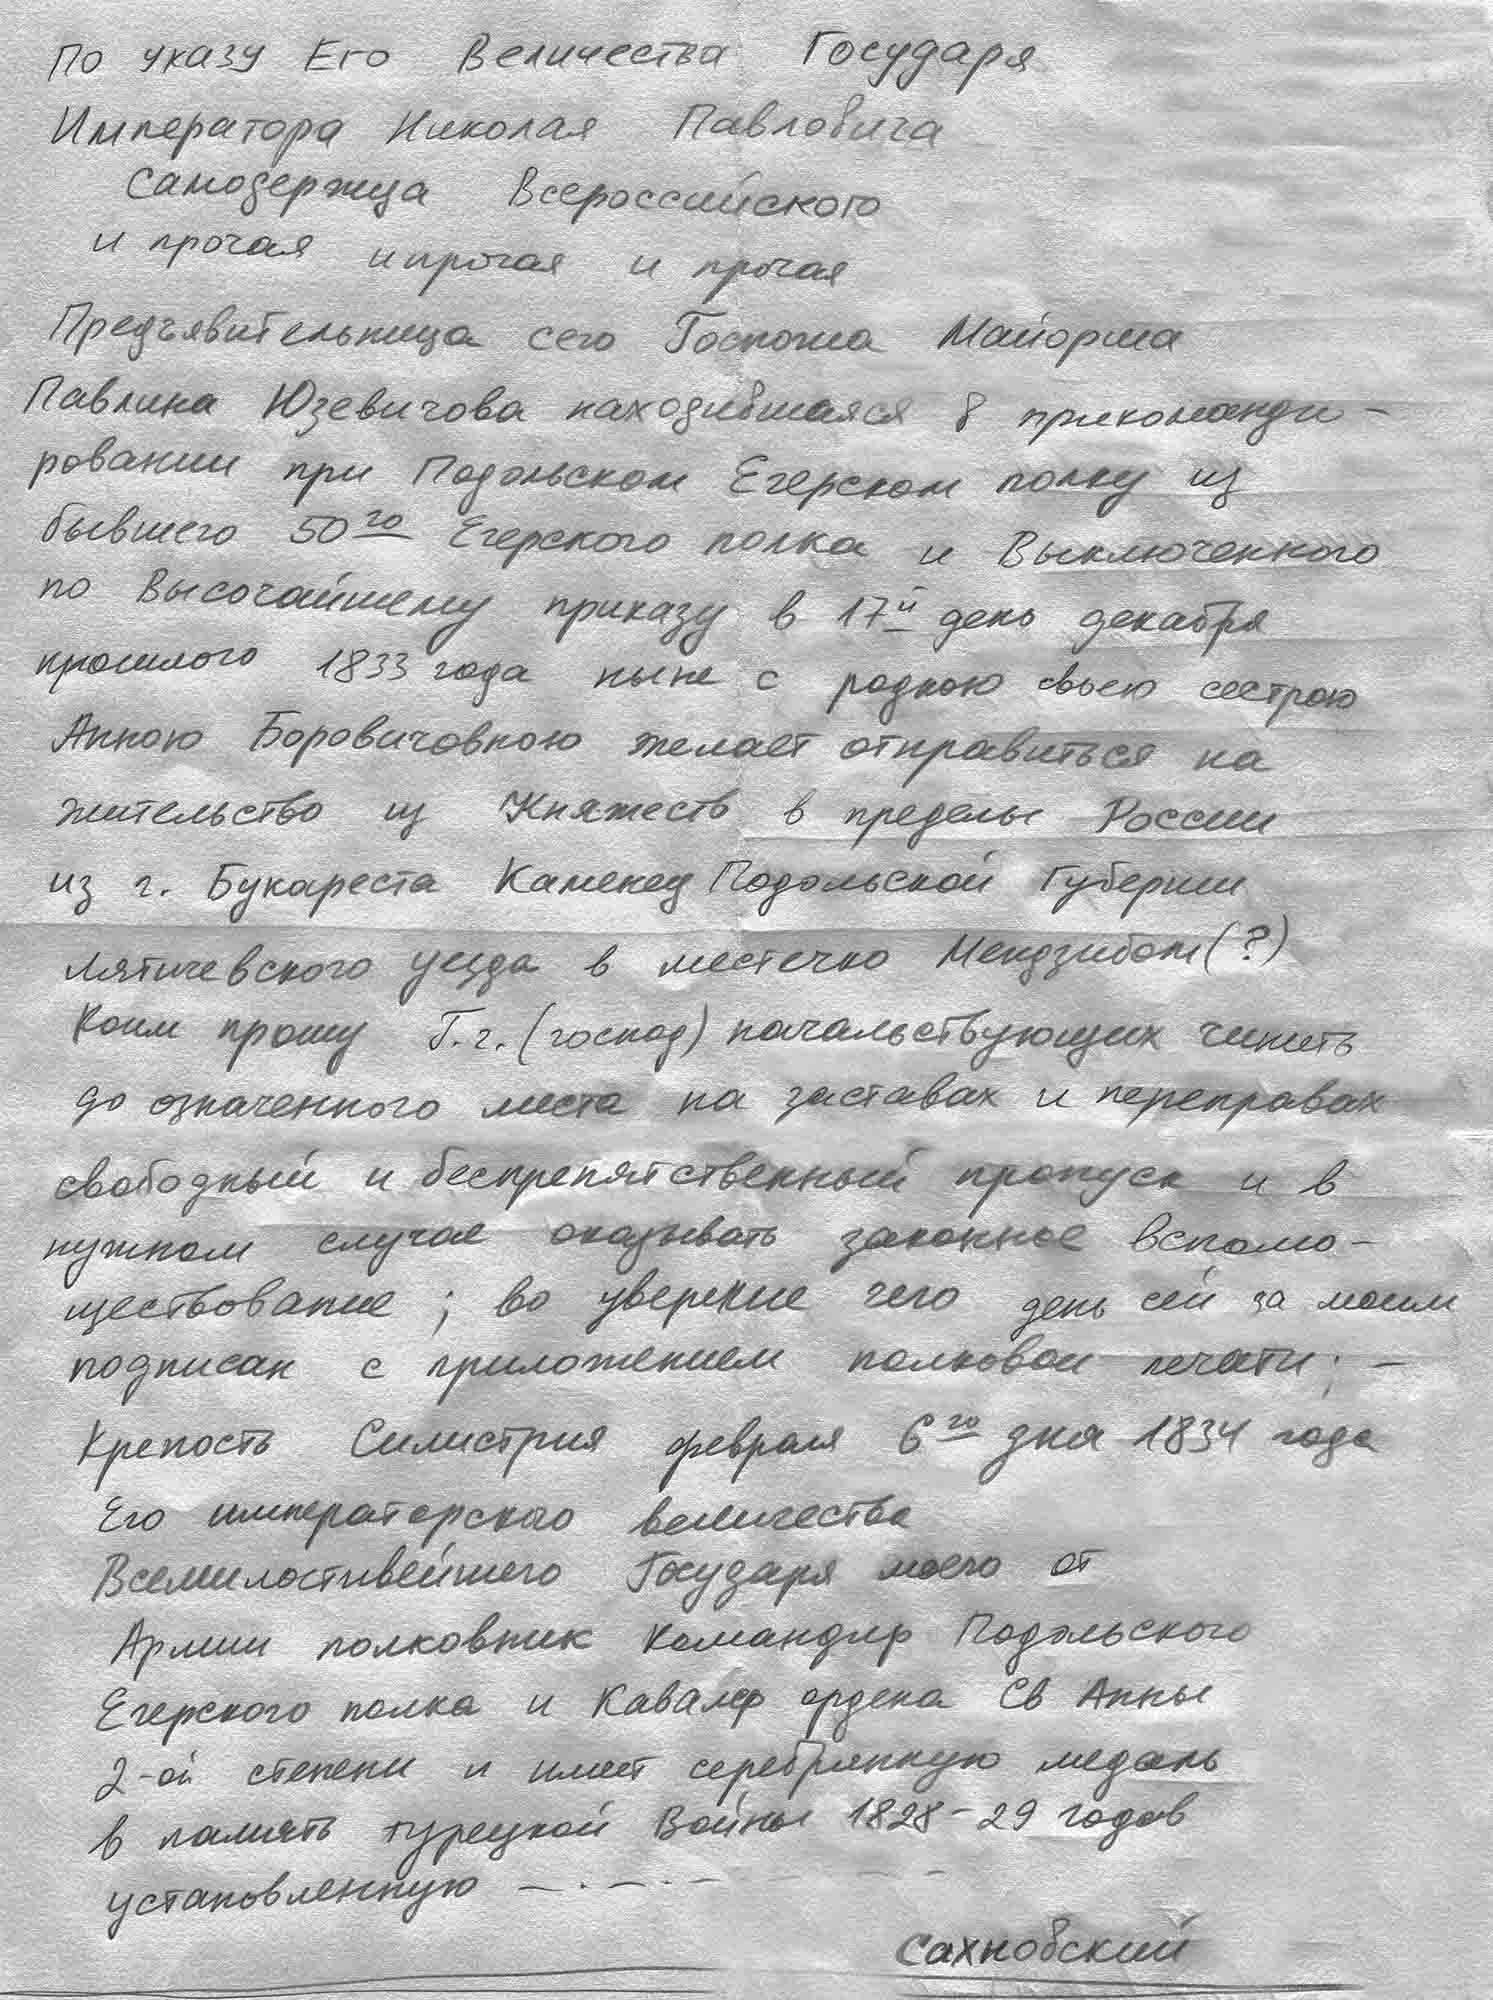 По указу Его Величества Государя
Императора Николая Павловича
Самодержца Всероссийского
и прочая и прочая и прочая
Предъявительница сего Госпожа Майорша
Павлина Юзевичова находившаяся в прикоманди-
ровании при Подольском Егерском полку из
бывшего 50го Егерского полка и Выключенного
по Высочайшему приказу в 17й день декабря
прошлого 1833 года ныне с родною своею сестрою
Анною Боровичовною желает отправиться на
жительство из Княжеств в пределы России
из г. Букареста Каменец Подольской Губернии
Лятичевского уезда в местечко Мендзибож (?)
Коим прошу Г.г. (господ) начальствующих чинить
до означенного места на заставах и переправах
свободный и беспрепятственный пропуск и в
нужном случае оказывать законное вспомо-
ществование; во уверение чего день сей за моим
подписан с приложением полковой печати; -
Крепость Силистрия февраля 6го дня 1834 года
Его императорского величества
Всемилостивейшего Государя моего от
Армии полковник командир Подольского
Егерского полка и Кавалер ордена Св Анны
2-ой степени и имеет серебрянную медаль
в память турецкой Войны 1828-29 годов
установленную — . — . —
Сахновский